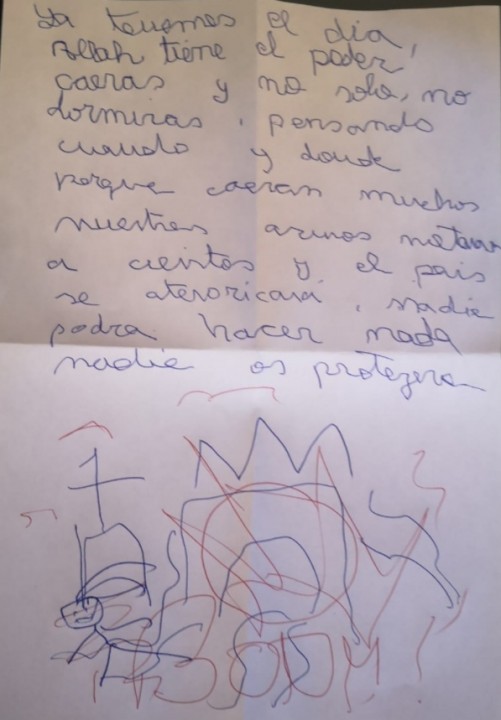 Ya tenemos el dia,
Allah tiene el poder
caeras y no solo, no
dormiras, pensando
cuando y donde
porque caeran muchos
nuestras armas mataran
a cientos y el pais
se aterorizara, nadie
podra hacer nada
nadie os protegera
BOOM